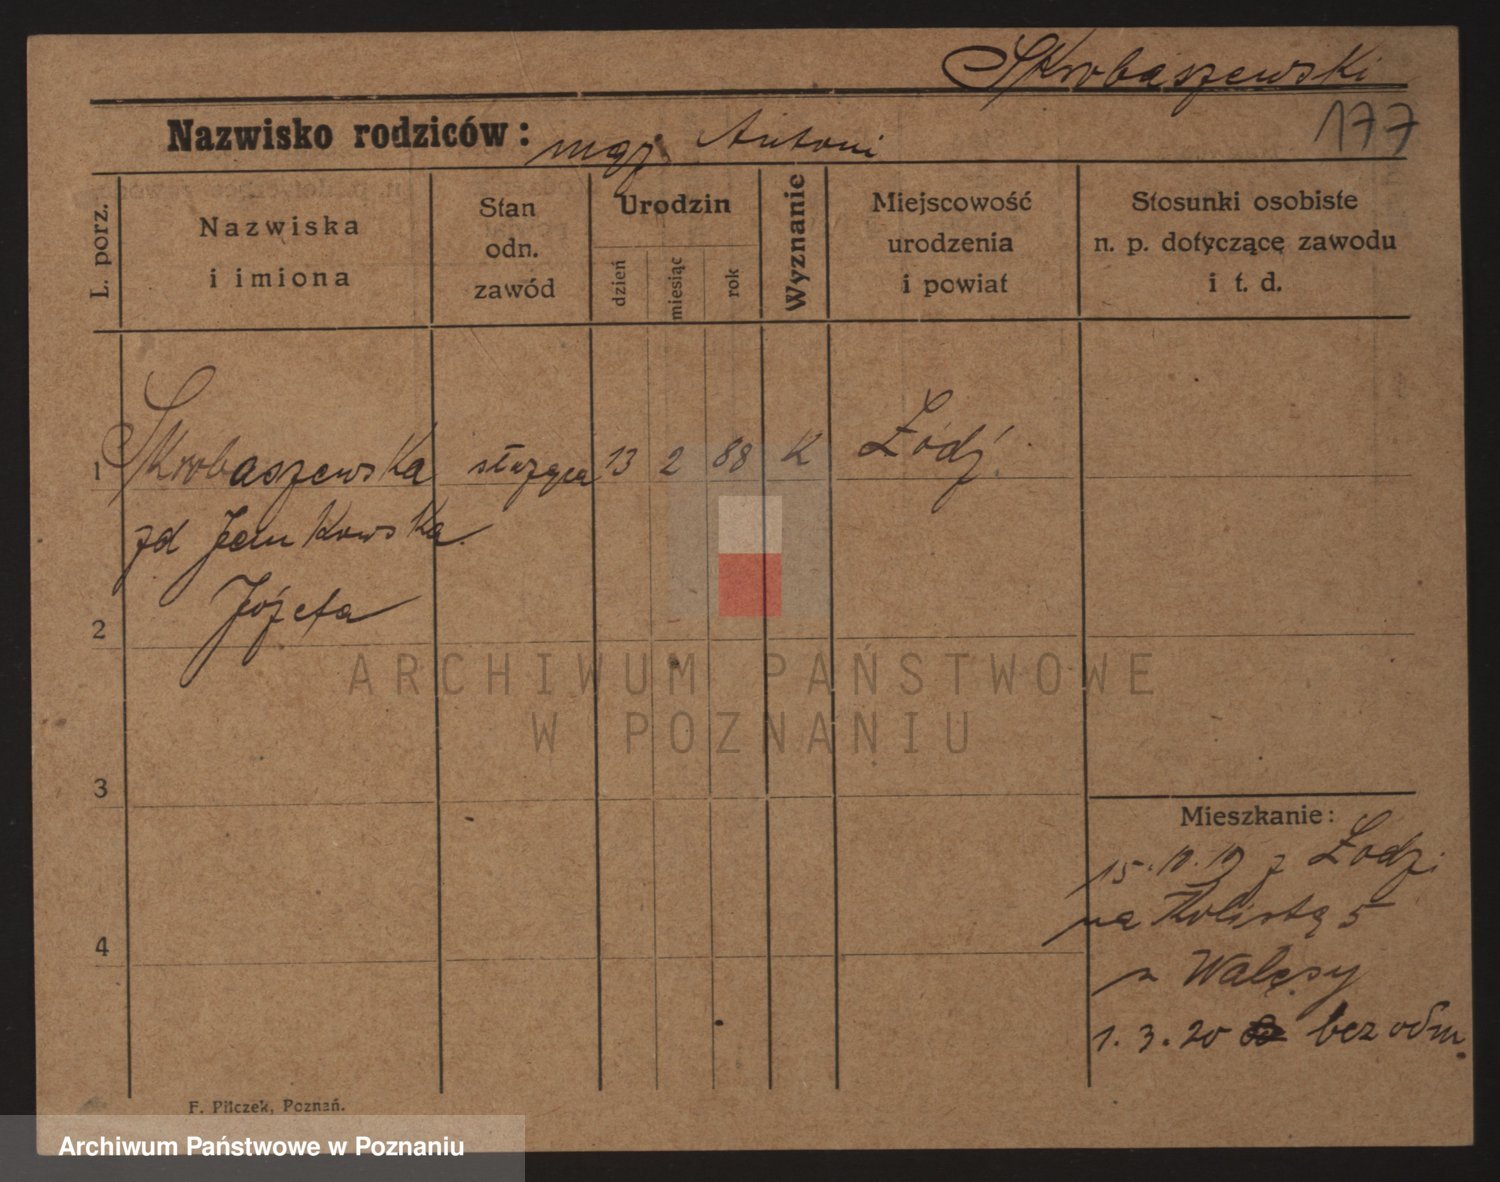 Skrobaszewski
177
Nazwisko rodziców: mąż Antoni
L. porz.
Nazwiska
i imiona
Stan
odn.
zawód
Urodzin
dzień
miesiąc
rok
Wyznanie
Miejscowość
urodzenia
i powiat
Stosunki osobiste
n. p. dotyczące zawodu
i t. d.
1 Skrobaszewska służąca 13 2 88 K Łódź.
zd Jankowska
Józefa
2
ARCHIWUM PAŃSTWOWE
W POZNANIU
3
4
Mieszkanie:
15.10.19 z Łodzi
na Kolistą 5
Walęsy
1.3.20 bez odm.
F. Pilczek, Poznań.
Archiwum Państwowe w Poznaniu